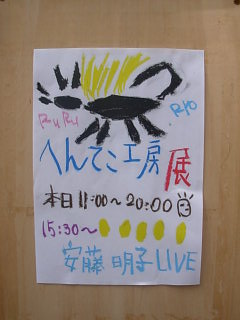 RuRi
Rio
へんてこ工房
展
本日 11:00~20:00
15:30~
安藤 明子 LIVE